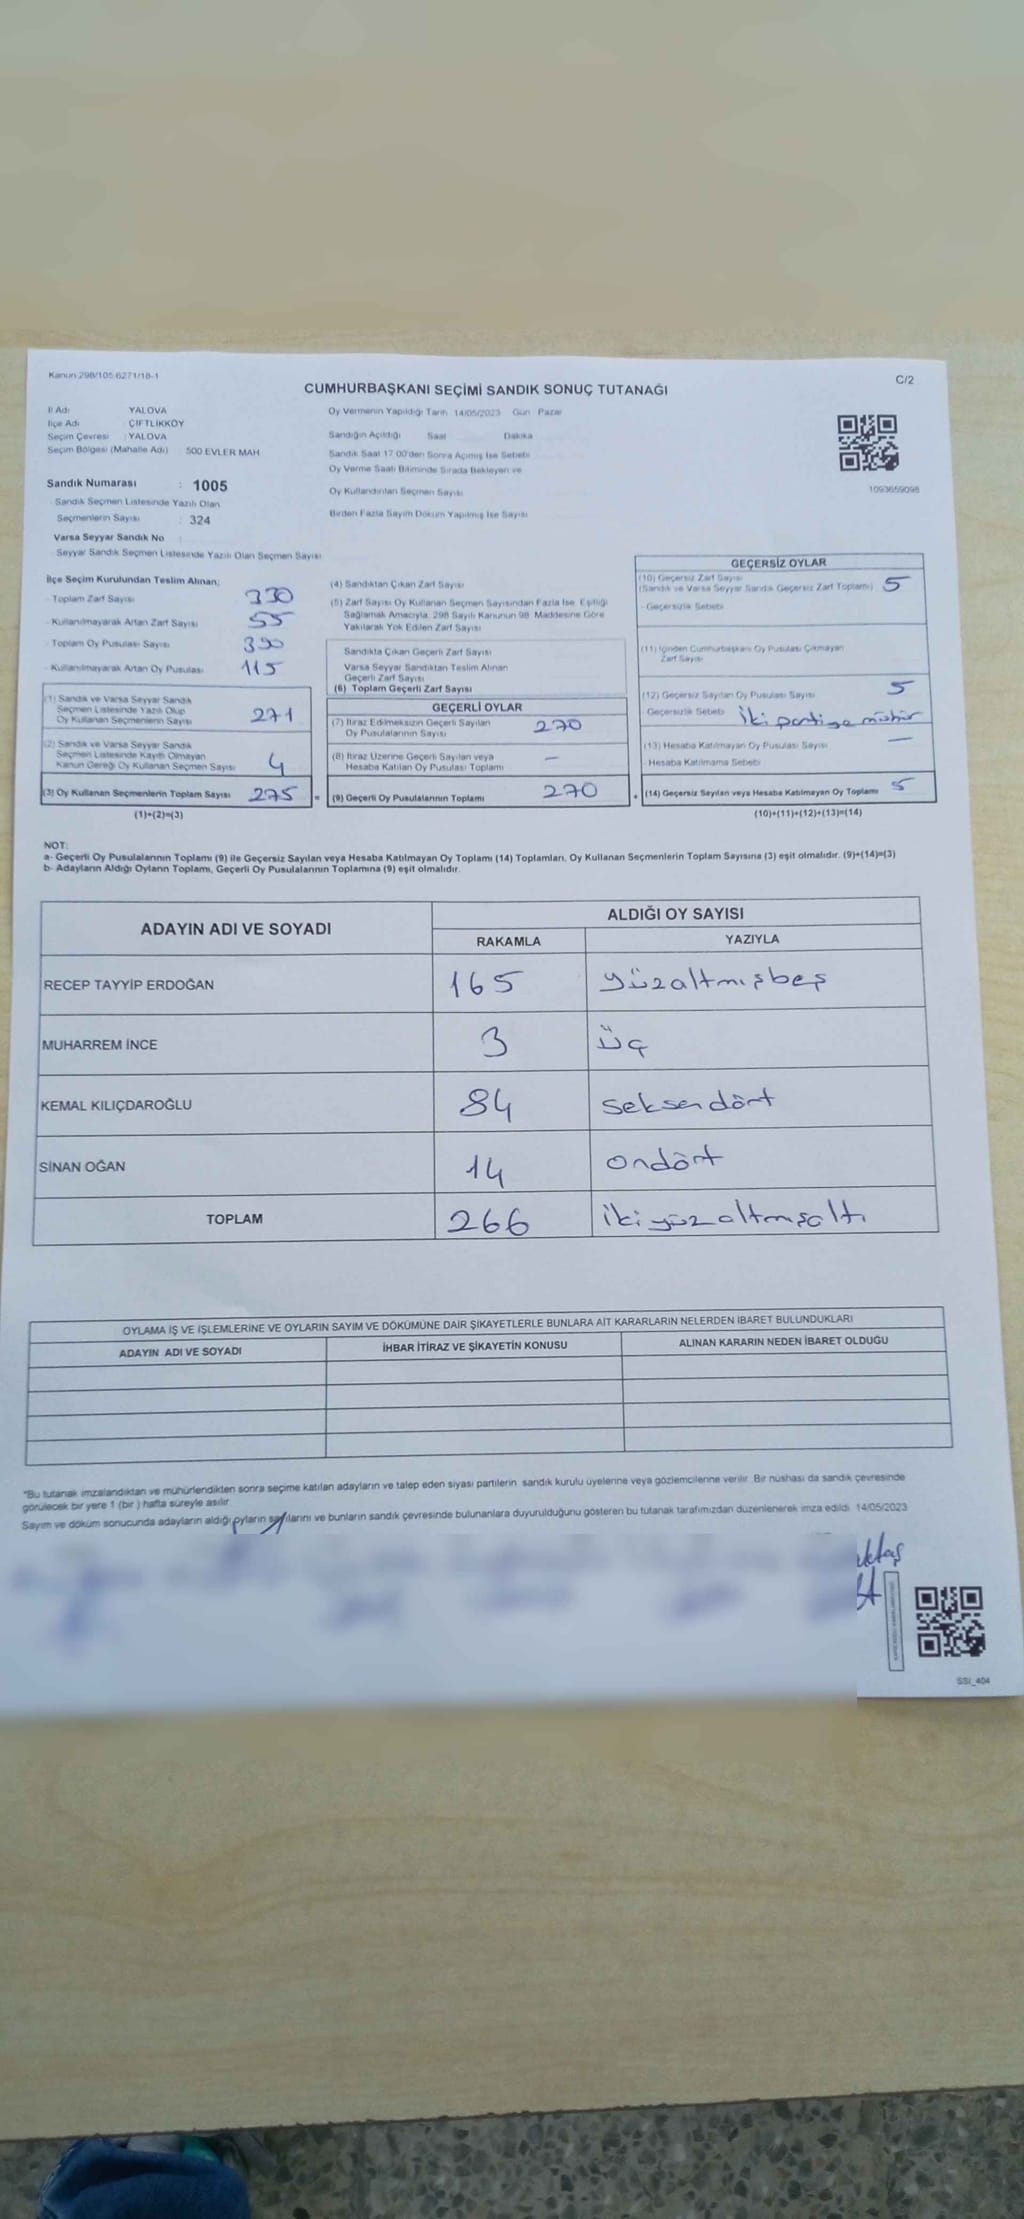 Kanun 298/105 6271/18-1
C/2
CUMHURBAŞKANI SEÇİMİ SANDIK SONUÇ TUTANAĞI
İl Adı YALOVA
İlçe Adı ÇİFTLİKKÖY
Seçim Çevresi : YALOVA
Seçim Bölgesi (Mahalle Adı) 500 EVLER MAH
Sandık Numarası : 1005
Sandık Seçmen Listesinde Yazılı Olan
Seçmenlerin Sayısı : 324
Varsa Seyyar Sandık No
Seyyar Sandık Seçmen Listesinde Yazılı Olan Seçmen Sayısı
Oy Vermenin Yapıldığı Tarih 14/05/2023 Gün Pazar
Sandığın Açıldığı Saat Dakika
Sandık Saat 17 00'den Sonra Açımış İse Sebebi
Oy Verme Saati Bitiminde Sırada Bekleyen ve
Oy Kullandırılan Seçmen Sayısı
Birden Fazla Sayım Döküm Yapılmış İse Sayısı
1093659098
İlçe Seçim Kurulundan Teslim Alınan:
- Toplam Zarf Sayısı 330
- Kullanılmayarak Artan Zarf Sayısı 55
- Toplam Oy Pusulası Sayısı 390
- Kullanılmayarak Artan Oy Pusulası 115
(1) Sandık ve Varsa Seyyar Sandık
Seçmen Listesinde Yazılı Olup
Oy Kullanan Seçmenlerin Sayısı 271
(2) Sandık ve Varsa Seyyar Sandık
Seçmen Listesinde Kayıtlı Olmayan
Kanun Gereği Oy Kullanan Seçmen Sayısı 4
(3) Oy Kullanan Seçmenlerin Toplam Sayısı 275 =
(1)+(2)=(3)
(4) Sandıktan Çıkan Zarf Sayısı
(5) Zarf Sayısı Oy Kullanan Seçmen Sayısından Fazla İse, Eşitliği
Sağlamak Amacıyla, 298 Sayılı Kanunun 98. Maddesine Göre
Yakılarak Yok Edilen Zarf Sayısı
Sandıkta Çıkan Geçerli Zarf Sayısı
Varsa Seyyar Sandıktan Teslim Alınan
Geçerli Zarf Sayısı
(6) Toplam Geçerli Zarf Sayısı
GEÇERLİ OYLAR
(7) İtiraz Edilmeksizin Geçerli Sayılan
Oy Pusulalarının Sayısı 270
(8) İtiraz Üzerine Geçerli Sayılan veya
Hesaba Katılan Oy Pusulası Toplamı —
(9) Geçerli Oy Pusulalarının Toplamı 270 +
GEÇERSİZ OYLAR
(10) Geçersiz Zarf Sayısı
(Sandık ve Varsa Seyyar Sandık Geçersiz Zarf Toplamı) 5
- Geçersizlik Sebebi
(11) İçinden Cumhurbaşkanı Oy Pusulası Çıkmayan
Zarf Sayısı
(12) Geçersiz Sayılan Oy Pusulası Sayısı 5
- Geçersizlik Sebebi İki partiye mühür
(13) Hesaba Katılmayan Oy Pusulası Sayısı —
- Hesaba Katılmama Sebebi
(14) Geçersiz Sayılan veya Hesaba Katılmayan Oy Toplamı 5
(10)+(11)+(12)+(13)=(14)
NOT:
a- Geçerli Oy Pusulalarının Toplamı (9) ile Geçersiz Sayılan veya Hesaba Katılmayan Oy Toplamı (14) Toplamları, Oy Kullanan Seçmenlerin Toplam Sayısına (3) eşit olmalıdır. (9)+(14)=(3)
b- Adayların Aldığı Oyların Toplamı, Geçerli Oy Pusulalarının Toplamına (9) eşit olmalıdır.
ADAYIN ADI VE SOYADI
ALDIĞI OY SAYISI
RAKAMLA YAZIYLA
RECEP TAYYİP ERDOĞAN 165 yüzaltmışbeş
MUHARREM İNCE 3 üç
KEMAL KILIÇDAROĞLU 84 seksendört
SİNAN OĞAN 14 ondört
TOPLAM 266 ikiyüzaltmışaltı
OYLAMA İŞ VE İŞLEMLERİNE VE OYLARIN SAYIM VE DÖKÜMÜNE DAİR ŞİKAYETLERLE BUNLARA AİT KARARLARIN NELERDEN İBARET BULUNDUKLARI
ADAYIN ADI VE SOYADI İHBAR İTİRAZ VE ŞİKAYETİN KONUSU ALINAN KARARIN NEDEN İBARET OLDUĞU
"Bu tutanak imzalandıktan ve mühürlendikten sonra seçime katılan adayların ve talep eden siyasi partilerin sandık kurulu üyelerine veya gözlemcilerine verilir. Bir nüshası da sandık çevresinde
görülecek bir yere 1 (bir ) hafta süreyle asılır
Sayım ve döküm sonucunda adayların aldığı oyların sayılarını ve bunların sandık çevresinde bulunanlara duyurulduğunu gösteren bu tutanak tarafımızdan düzenlenerek imza edildi 14/05/2023
SSI_404